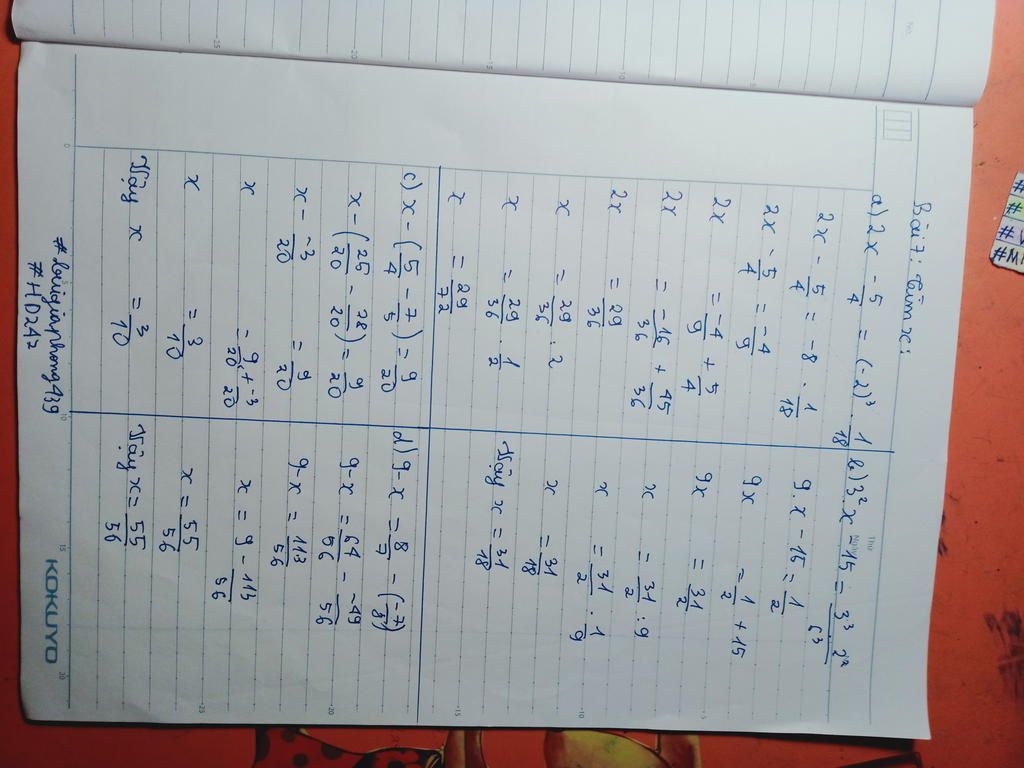 Bài 7: Tìm x:
a) 2x - 5/4 = (-2)³ . 1/18
2x - 5/4 = -8 . 1/18
2x - 5/4 = -4/9
2x = -4/9 + 5/4
2x = -16/36 + 45/36
2x = 29/36
x = 29/36 : 2
x = 29/36 . 1/2
x = 29/72
b) 3² . x - 15 = 3³ . 2²/6³
9 . x - 15 = 1/2
9x = 1/2 + 15
9x = 31/2
x = 31/2 : 9
x = 31/2 . 1/9
x = 31/18
Vậy x = 31/18
c) x - (5/4 - 7/5) = 9/20
x - (25/20 - 28/20) = 9/20
x - -3/20 = 9/20
x = 9/20 + -3/20
x = 3/10
Vậy x = 3/10
d) 9 - x = 8/7 - (-7/8)
9 - x = 64/56 - -49/56
9 - x = 113/56
x = 9 - 113/56
x = 55/56
Vậy x = 55/56
#HD247
KOKUYO